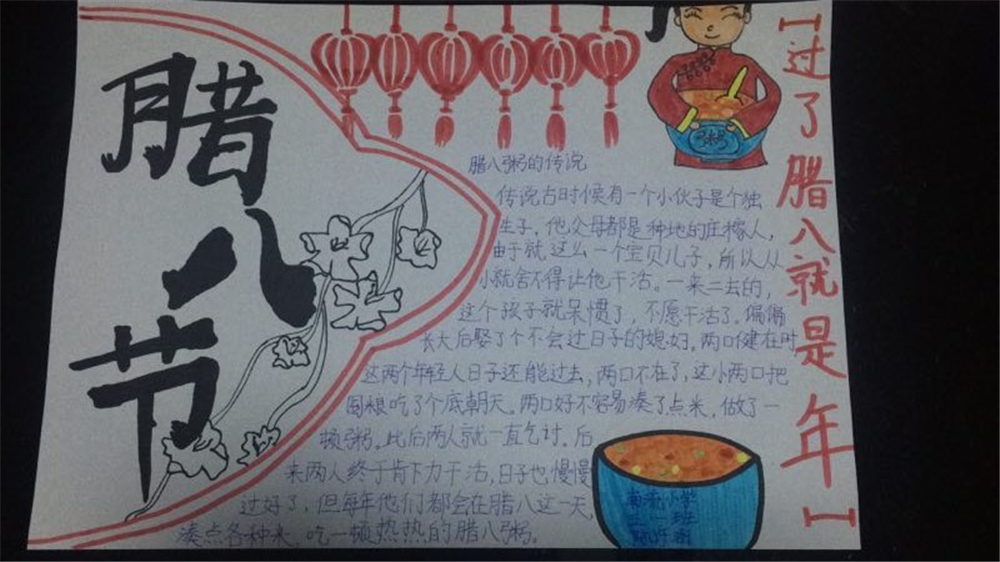 腊八节
腊八粥的传说
传说古时候有一个小伙子是个独
生子，他父母都是种地的庄稼人，
由于就这么一个宝贝儿子，所以从
小就舍不得让他干活。一来二去的，
这个孩子就呆惯了，不愿干活了。偏偏
长大后娶了个不会过日子的媳妇。两口健在时
这两个年轻人日子还能过去，两口不在了，这小两口把
囤粮吃了个底朝天。两口好不容易凑了点米，做了一
顿粥。此后两人就一直乞讨。后
来两人终于肯下力干活，日子也慢慢
过好了，但每年他们都会在腊八这一天，
凑点各种米，吃一顿热热的腊八粥。
粥
【过了腊八就是年】
小学
二一班